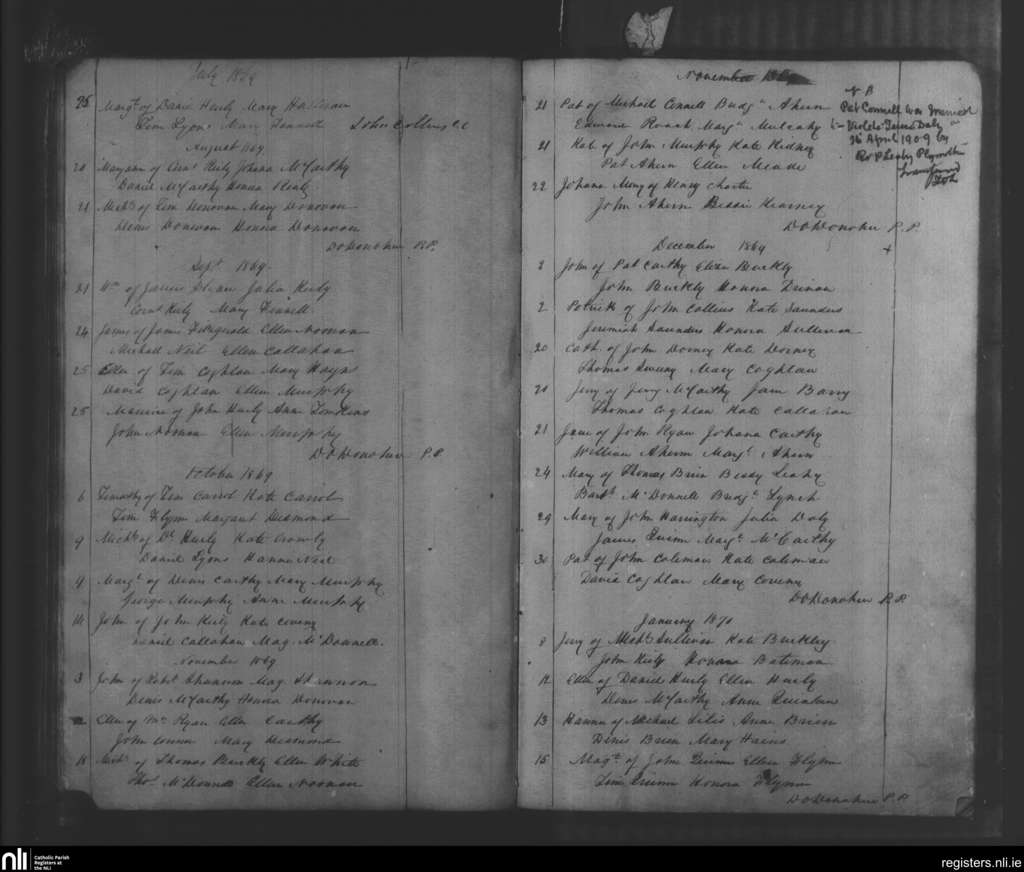 July 1869
25 Margt of Danl Hurly Mary
Tim Lyons Mary Fennell John Collins C.C
August 1869
20 Maryann of Corns Kiely Johana McCarthy
Daniel McCarthy Honora Kiely
21 Michl of Tim Donovan Mary Donovan
Denis Donovan Honora Donovan
D O'Donohue P.P.
Sept. 1869
21 Wm of James Julia Kiely
Corns Kiely Mary Fennell
24 James of James Fitzgerald Ellen Noonan
Michael Neil Ellen Callahan
25 Ellen of Tim Coghlan Mary Hays
David Coghlan Ellen Murphy
25 Maurice of John Hurly Anne
John Noonan Ellen Murphy
D O'Donohue P.P.
October 1869
6 Timothy of Tim Carrol Kate Carrol
Tim Flynn Margaret Desmond
9 Michl of Dl Hurly Kate Crowly
Daniel Lyons Hanna Neil
9 Margt of Denis Carthy Mary Murphy
George Murphy Anne Murphy
10 John of John Kiely Kate Coveny
Daniel Callahan Mag. McDonnell.
November 1869
3 John of Robt Shannon Mag. Shannon
Denis McCarthy Honora Donovan
Ellen of Ryan Ellen Carthy
John Mary Desmond
15 Michl of Thomas Buckly Ellen White
Thos McDonnell Ellen Noonan
November 1869
21 Pat of Michael Connell Budgt Ahern
Edmond Roach Margt Mulcahy
21 Kate of John Murphy Kate Kidney
Pat Ahern Ellen Meade
22 Johana Mary of Henry Charte
John Ahern Bessie Kearney
D O'Donohue P.P.
N B
Pat Connell was married
to Violet Daly
April 1909 by
Rev P Leahy Plymouth
December 1869
2 John of Pat Carthy Eliza Buckly
John Buckly Honora Drinan
2 Patrick of John Collins Kate Saunders
Jeremiah Saunders Honora Sullivan
20 Cath. of John Dorney Kate Dorney
Thomas Sweeny Mary Coghlan
20 Jery of Jery McCarthy Jane Barry
Thomas Coghlan Kate Callaghan
21 Jane of John Ryan Johana Carthy
William Ahern Margt Ahern
24 Mary of Thomas Brien Bessy Leahy
Bartw McDonnell Budgt Lynch
29 Mary of John Harrington Julia Daly
James Quinn Margt McCarthy
30 Pat of John Coleman Kate Coleman
David Coghlan Mary Coveny
D O'Donohue P.P.
January 1870
8 Jery of Michl Sullivan Kate Buckley
John Kiely Honora Bateman
12 Ellen of Daniel Hurly Ellen Hurly
Denis McCarthy Anne Quinlan
13 Hanna of Michael Anne Brien
Denis Brien Mary Hains
15 Magt of John Quinn Ellen Flynn
Tim Quinn Honora Flynn
D O'Donohue P.P.
nli
Catholic Parish
Registers at
the NLI
registers.nli.ie